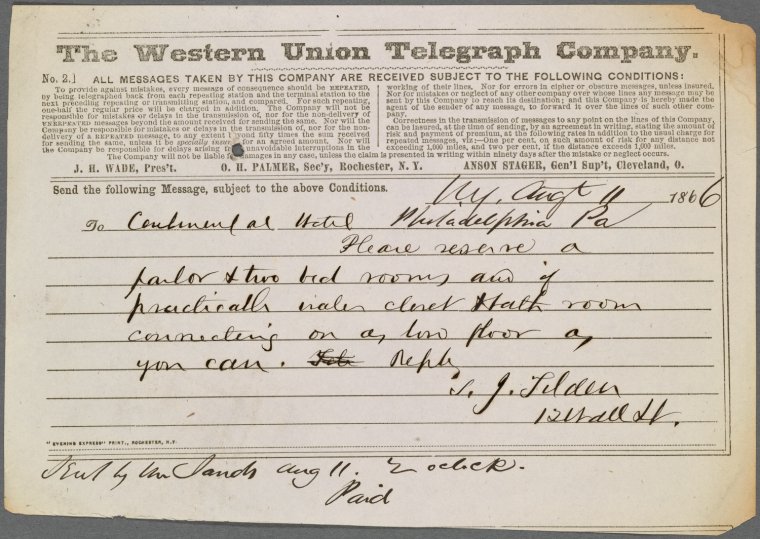 The Western Union Telegraph Company.
No. 2.] ALL MESSAGES TAKEN BY THIS COMPANY ARE RECEIVED SUBJECT TO THE FOLLOWING CONDITIONS:
To provide against mistakes, every message of consequence should be REPEATED,
by being telegraphed back from each repeating station and the terminal station to the
next preceding repeating or transmitting station, and compared. For such repeating,
one-half the regular price will be charged in addition. The Company will not be
responsible for mistakes or delays in the transmission of, nor for the non-delivery of
UNREPEATED messages beyond the amount received for sending the same. Nor will the
Company be responsible for mistakes or delays in the transmission of, nor for the non-
delivery of a REPEATED message, to any extent beyond fifty times the sum received
for sending the same, unless it be specially insured for an agreed amount. Nor will
the Company be responsible for delays arising from unavoidable interruptions in the
working of their lines. Nor for errors in cipher or obscure messages, unless insured.
Nor for mistakes or neglect of any other company over whose lines any message may be
sent by this Company to reach its destination; and this Company is hereby made the
agent of the sender of any message, to forward it over the lines of such other company.
Correctness in the transmission of messages to any point on the lines of this Company,
can be insured, at the time of sending, by an agreement in writing, stating the amount of
risk and payment of premium, at the following rates in addition to the usual charge for
repeated messages, viz:—One per cent, on such amount of risk for any distance not
exceeding 1,000 miles, and two per cent, if the distance exceeds 1,000 miles.
The Company will not be liable for damages in any case, unless the claim is presented in writing within ninety days after the mistake or neglect occurs.
J. H. WADE, Pres't. O. H. PALMER, Sec'y, Rochester, N. Y. ANSON STAGER, Gen'l Sup't, Cleveland, O.
Send the following Message, subject to the above Conditions.
NY. Augt 11 1866
To Continental Hotel Philadelphia Pa
Please reserve a
parlor & two bed rooms and if
practicable water closet & bath room
connecting on as low floor as
you can. Reply
S. J. Tilden
12 Wall St.
"EVENING EXPRESS" PRINT., ROCHESTER, N.Y.
Sent by Sands Aug 11. 2 oclock.
Paid